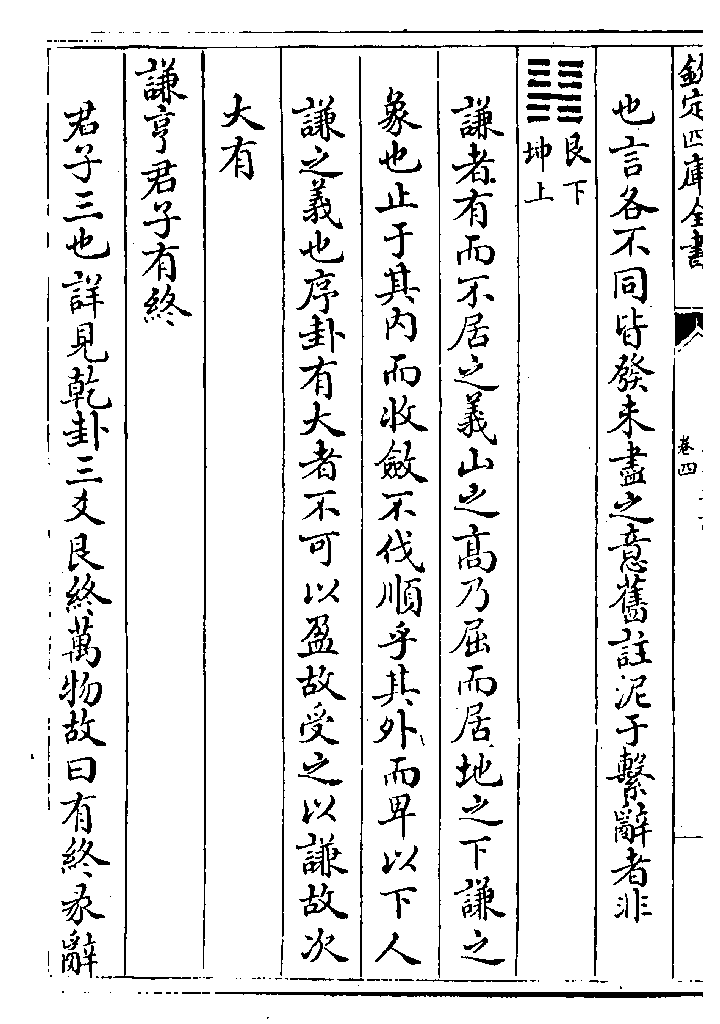 欽定四庫全書
卷四
也言各不同皆發未盡之意舊註泥于繫辭者非
艮下
坤上
謙者有而不居之義山之高乃屈而居地之下謙之
象也止于其内而收斂不伐順乎其外而卑以下人
謙之義也序卦有大者不可以盈故受之以謙故次
大有
謙亨君子有終
君子三也詳見乾卦三爻艮終萬物故曰有終彖辭